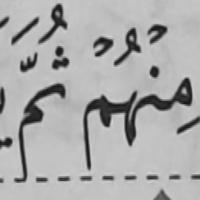 مِنْهُمْ ثُمَّ